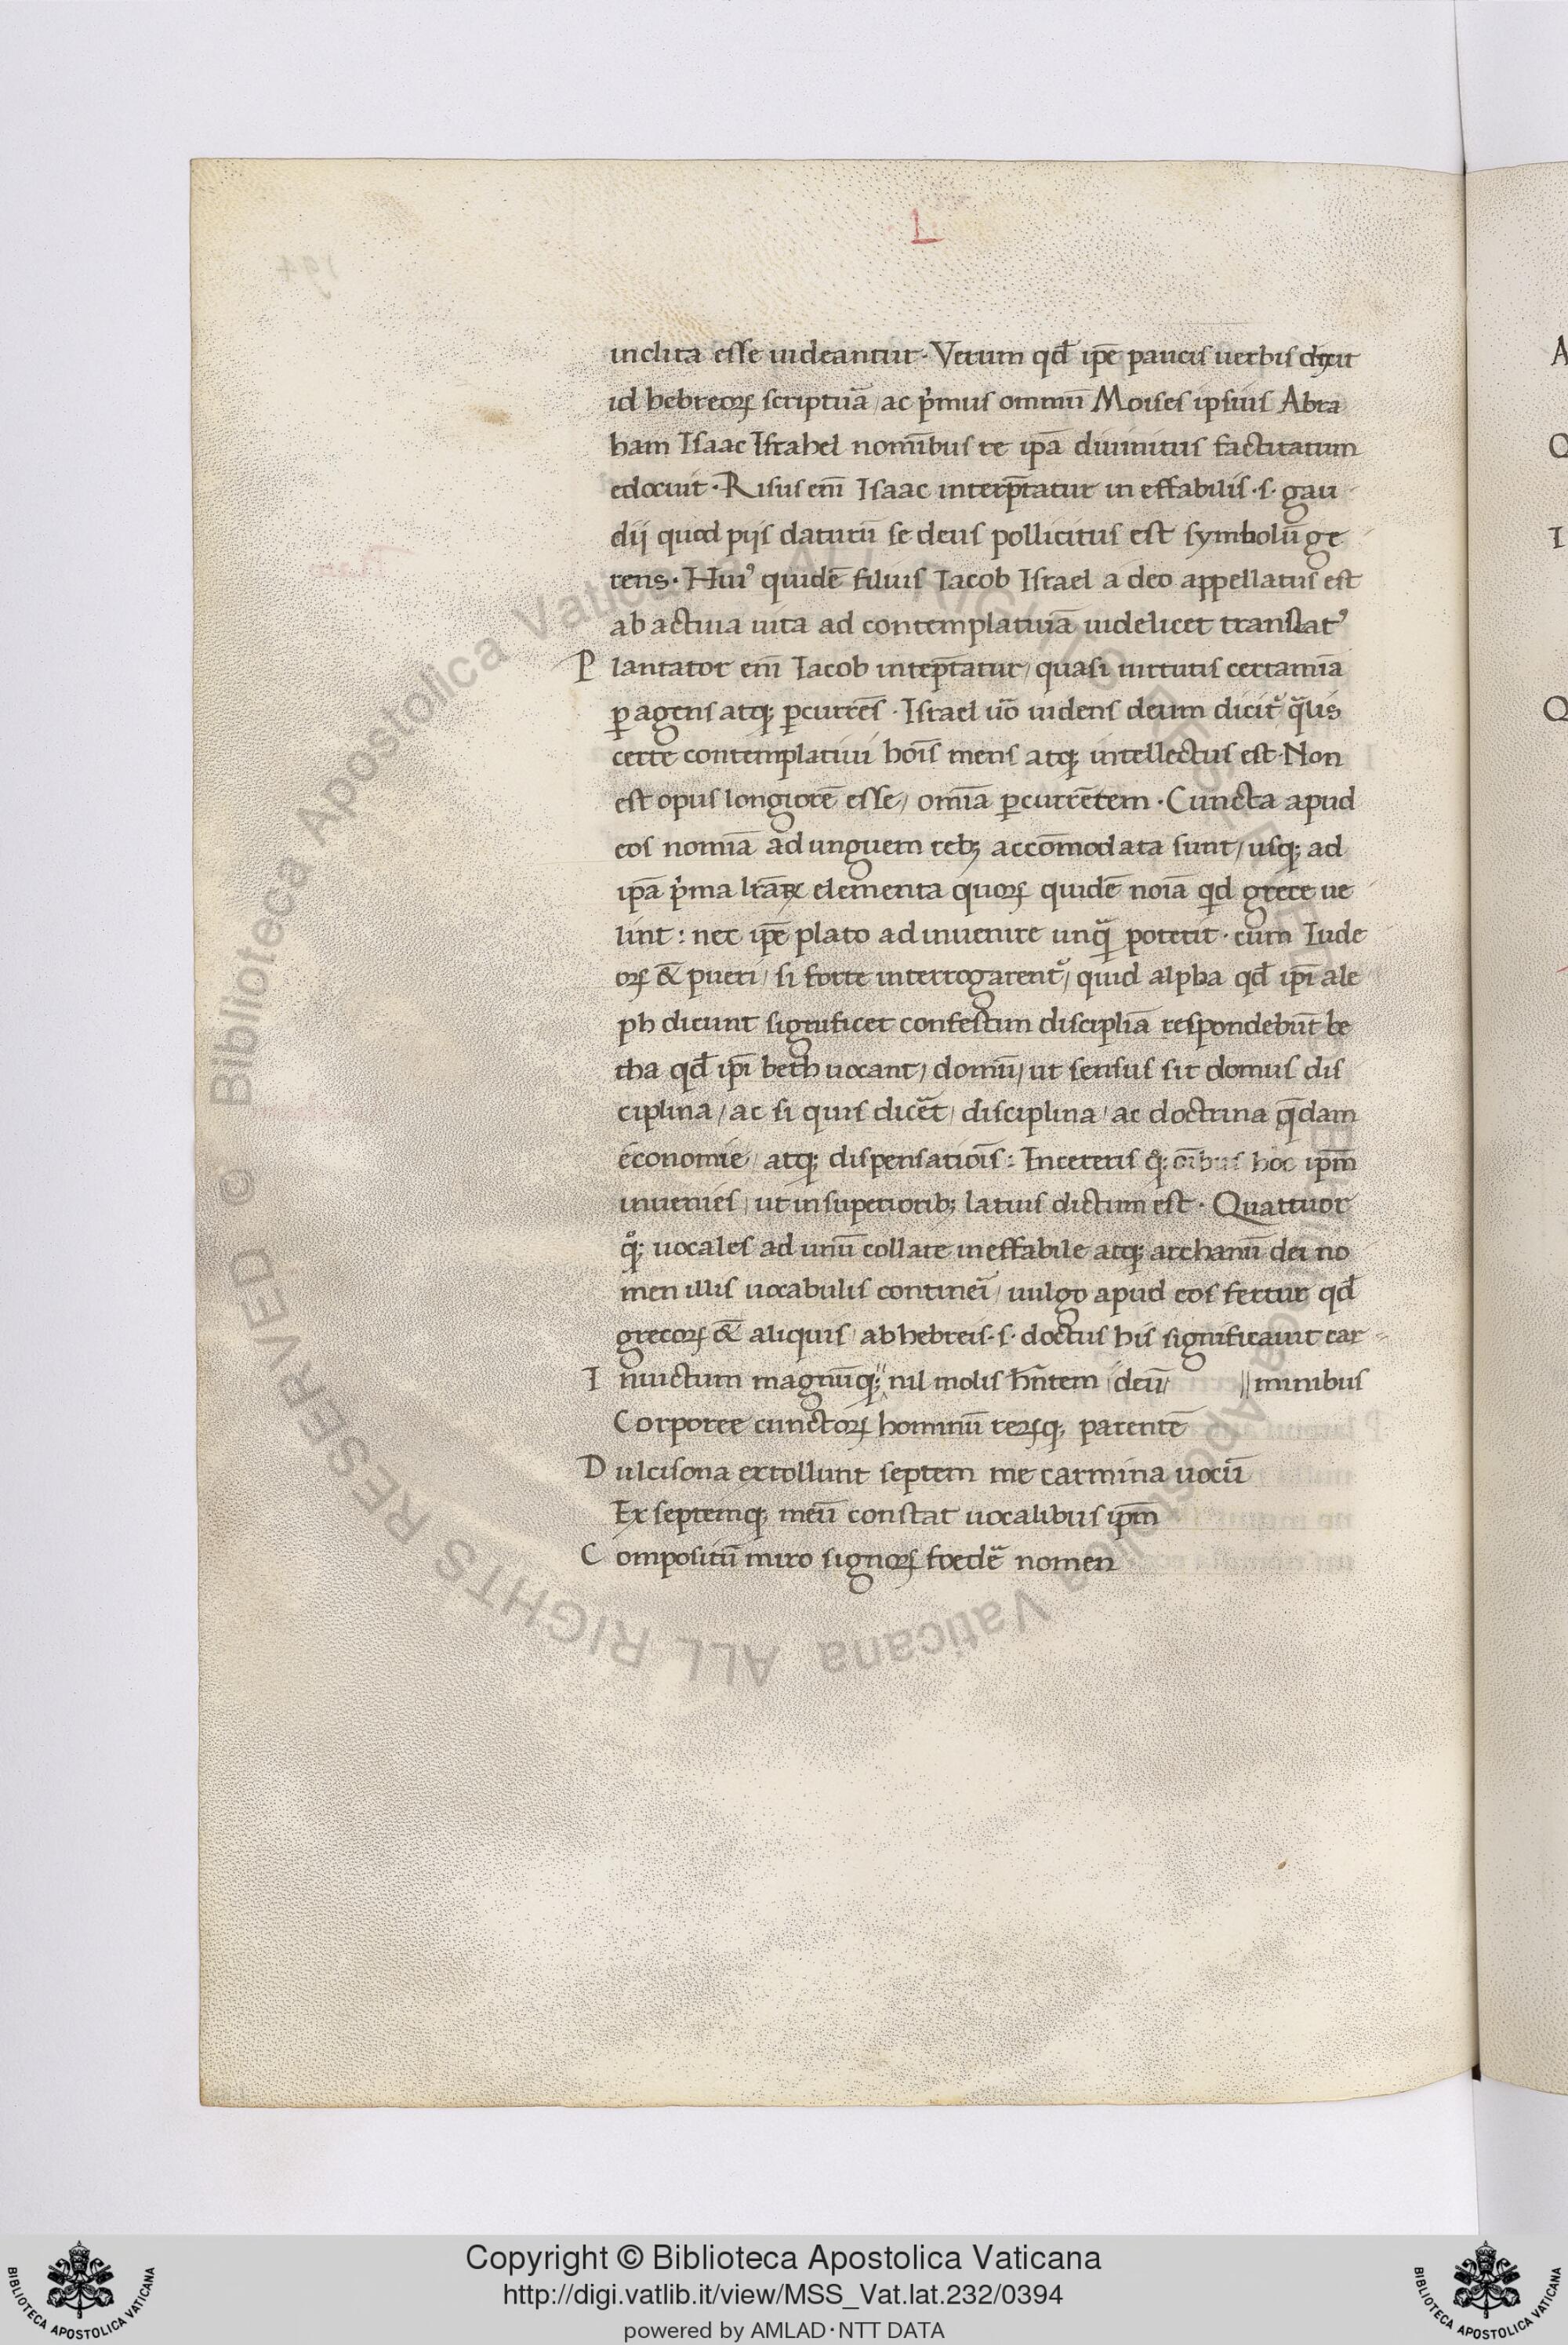 L
inclita esse uideantur. Verum qd̄ ip̄e paucis uerbis dixit
id hebreoꝝ scriptura͂ / ac p̓mus omniū Moises ipsius Abra
ham Isaac Israhel nomībus re ip̄a diuinitus factitatum
edocuit. Risus em̄ Isaac interp̄tatur in effabilis .s. gau
dij quod pijs daturū se deus pollicitus est symbolū ge
rens. Huiꝰ quidē filius Iacob Israel a deo appellatus est
ab actiua uita ad contemplatiuā uidelicet translatꝰ
Plantator em̄ Iacob interp̄tatur / quasi uirtutis certamīa
ꝑ agens atq; ꝑcurrēs. Israel uō uidens deum dicit᷑ q̄lis
certe contemplatiui hoīs mens atq; intellectus est. Non
est opus longiorē esse / omīa ꝑcurrētem. Cuncta apud
eos nomīa ad unguem reb; accōmodata sunt / usq; ad
ip̄a p̓ma lr̄aꝝ elementa quoꝝ quidē noīa qd grece ue
lint: nec ip̄e plato adinuenire unq̄ poterit. cum Iude
oꝝ & pueri / si forte interrogarent᷑ / quid alpha qd̄ ip̄i ale
ph dicunt significet confestim disciplīa respondebūt be
tha qd̄ ip̄i beth uocant / domū / ut sensus sit domus dis
ciplina / ac si quis dicēt / disciplina / ac doctrina q̄dam
economie / atq; dispensatiōis: In ceteris q̊; oībus hoc ip̄m
inuenies / ut in superiorib; latius dictum est. Quattuor
q̊; uocales ad unū collate ineffabile atq; archanū dei no
men illis uocabulis contineri / uulgo apud eos fertur qd̄
grecoꝝ & aliquis / ab hebreis .s. doctus his significauit car
Inuictum magnūq; nil molis hn̄tem / deū / || minibus
Corporee cunctoꝝ hominū reꝝq; parentē
Dulcisona extollunt septem me carmina uocū
Ex septemq; meū constat uocalibus ip̄m
Compositū miro signoꝝ foedē nomen
Copyright © Biblioteca Apostolica Vaticana
http://digi.vatlib.it/view/MSS_Vat.lat.232/0394
powered by AMLAD·NTT DATA